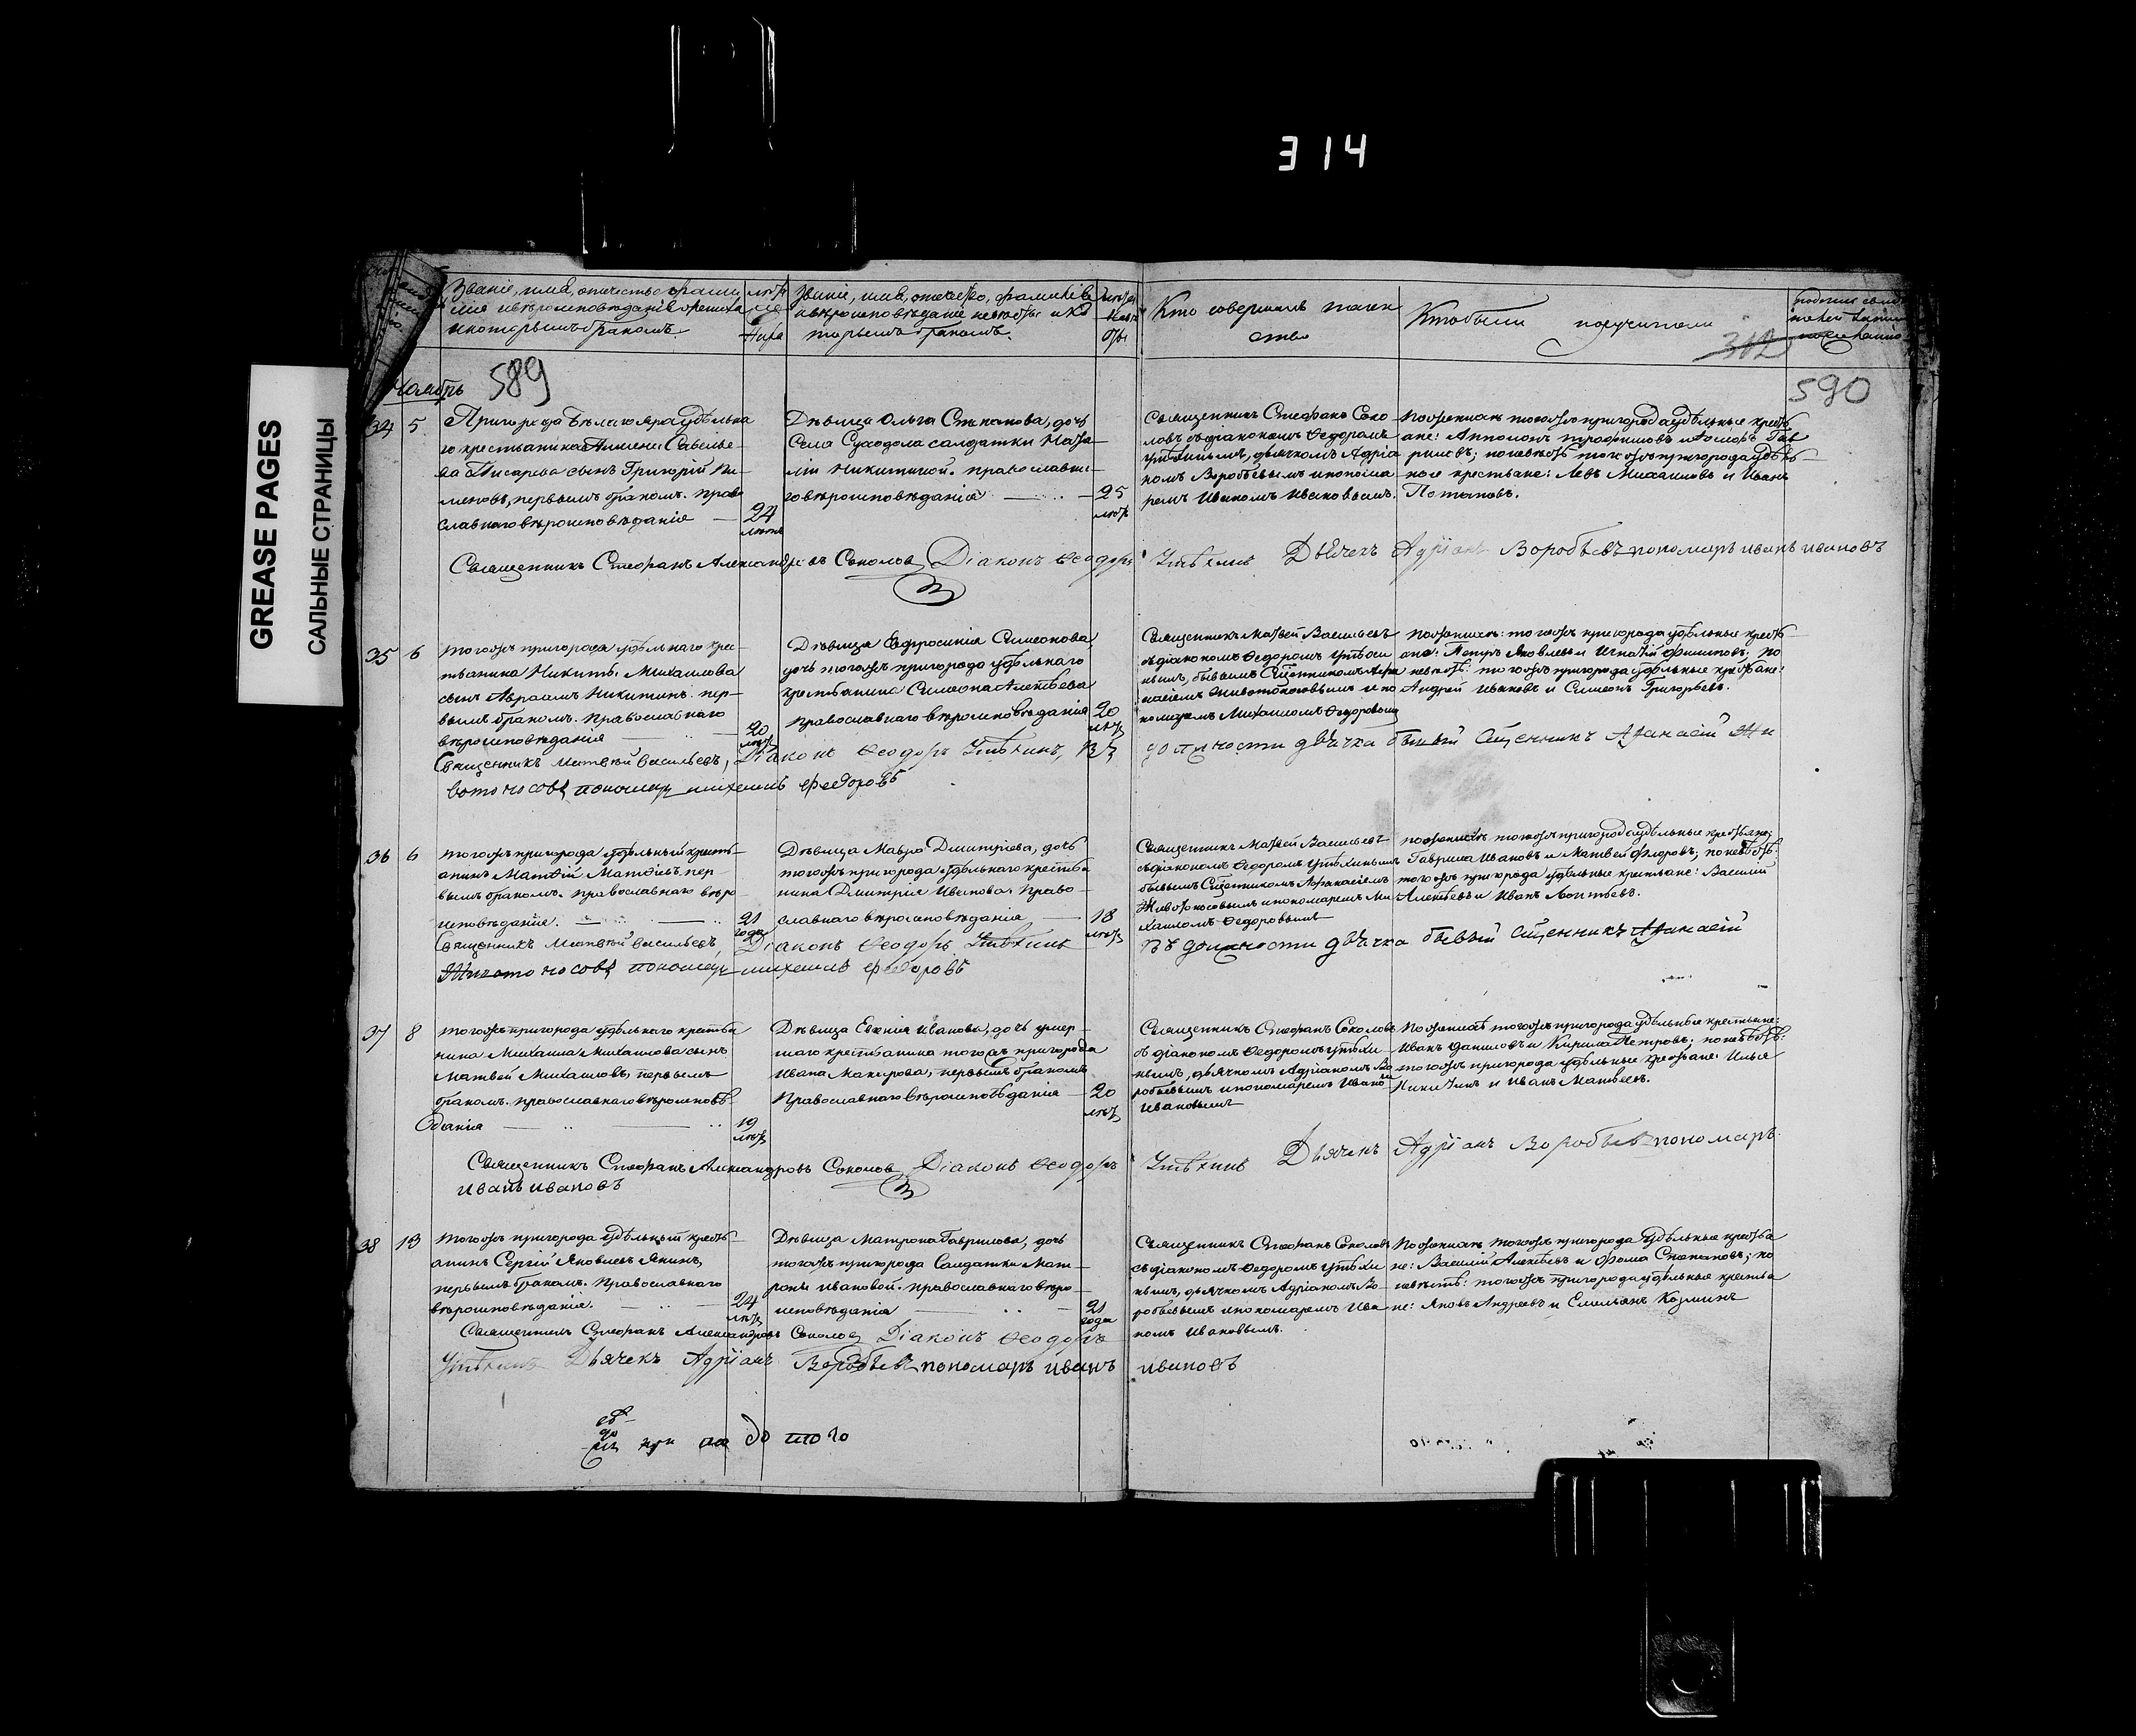 314
GREASE PAGES
САЛЬНЫЕ СТРАНИЦЫ
Званіе, имя, отечество, фами
лія и вѣроисповѣданіе жениха
и которымъ бракомъ.
лѣта
же
ниха
Званіе, имя, отечество, фамилія и
вѣроисповѣданіе невѣсты и ко
торымъ бракомъ.
лѣта
невѣ
сты
Кто совершалъ таин
ство
Кто были поручители
312
Ноябрь
589
590
34
5
Пригорода Бѣлаго Яра удѣльна
го крестьянина Савелье
ва Писарева сынъ Григорій
первымъ бракомъ. Право
славнаго вѣроисповѣданія
24
лѣтъ
Дѣвица Ольга Степанова, дочь
Села Суходола салдатки Ната
ліи Никитиной. православна
го вѣроисповѣданія
25
лѣтъ
Священникъ Стефанъ Соко
ловъ съ діакономъ Ѳедоромъ
Утѣхинымъ, дьячкомъ Адріа
номъ Воробьевымъ и понома
ремъ Иваномъ Ивановымъ.
По женихѣ тогожъ пригорода удѣльные кресть
яне: Трофимовъ и Гав
риловъ; по невѣстѣ тогожъ пригорода удѣль
ные крестьяне: Левъ Михайловъ и Иванъ
Потаповъ.
Священникъ Стефанъ Александровъ Соколов Діаконъ Ѳеодоръ Утѣхинъ Дьячекъ Адріанъ Воробьевъ пономарь иванъ ивановъ
35
6
Тогожъ пригорода удѣльнаго крес
тьянина Никиты Михайлова
сынъ Авраамъ Никитинъ. пер
вымъ бракомъ. Православнаго
вѣроисповѣданія
20
лѣтъ
Дѣвица Евфросинія Симеонова,
дочь тогожъ пригорода удѣльнаго
крестьянина Симеона Алексѣева
Православнаго вѣроисповѣданія
20
лѣтъ
Священникъ Матвей Васильевъ
съ діакономъ Ѳедоромъ Утѣхи
нымъ, бывшимъ Сщенникомъ Афа
насіемъ Животоносовымъ и по
номаремъ Михаиломъ Ѳедоровымъ
По женихѣ: тогожъ пригорода удѣльные кресть
яне: Петръ Яковлевъ и Игнатій Филиповъ; по
невѣстѣ: тогожъ пригорода удѣльные крестьяне:
Андрей Ивановъ и Симеонъ Григорьевъ.
Священникъ Матвѣй Васильевъ, Діаконъ Ѳеодоръ Утѣхинъ, Въ должности дьячка бывый Сщенникъ Афанасій Жи
вотоносовъ, пономарь михаилъ федоровъ
36
6
Тогожъ пригорода удѣльный кресть
янинъ Матѳій Матѳіевъ пер
вымъ бракомъ. Православнаго вѣро
исповѣданія.
21
года
Дѣвица Мавра Дмитріева, дочь
тогожъ пригорода удѣльнаго крестья
нина Дмитрія Иванова. Право
славнаго вѣроисповѣданія
18
лѣтъ
Священникъ Матвей Васильевъ
съ діакономъ Ѳедоромъ Утѣхинымъ
бывшимъ Сщенникомъ Афанасіемъ
Животоносовымъ и пономаремъ Ми
хаиломъ Ѳедоровымъ
По женихѣ тогожъ пригорода удѣльные крестьяне:
Гаврила Ивановъ и Матвей Флоровъ; по невѣстѣ:
тогожъ пригорода удѣльные крестьяне: Василий
Алексѣевъ и Иванъ Леонтьевъ.
Священникъ Матвѣй Васильевъ, Діаконъ Ѳеодоръ Утѣхинъ Въ должности дьячка бывый Сщенникъ Афанасій
Животоносовъ, пономарь михаилъ федоровъ
37
8
Тогожъ пригорода удѣльнаго крестья
нина Михаила Михаилова сынъ
Матвей Михаиловъ, первымъ
бракомъ. Православнаго вѣроисповѣ
данія
19
лѣтъ
Дѣвица Евгенія Иванова, дочь умер
шаго крестьянина тогожъ пригорода
Ивана Макарова, первымъ бракомъ
Православнаго вѣроисповѣданія
20
лѣтъ
Священникъ Стефанъ Соколовъ
съ діакономъ Ѳедоромъ Утѣхи
нымъ, дьячкомъ Адріаномъ Во
робьевымъ и пономаремъ Иваномъ
Ивановымъ
По женихѣ тогожъ пригорода удѣльные крестьяне:
Иванъ Даниловъ и Кирила Петровъ; по невѣстѣ:
тогожъ пригорода удѣльные крестьяне: Илья
Никитинъ и Иванъ Матвеевъ.
Священникъ Стефанъ Александровъ Соколов Діаконъ Ѳеодоръ Утѣхинъ Дьячекъ Адріанъ Воробьевъ пономарь
иванъ ивановъ
38
13
Тогожъ пригорода удѣльный кресть
янинъ Сергій Яковлевъ Янинъ,
первымъ бракомъ. Православнаго
вѣроисповѣданія.
24
лѣтъ
Дѣвица Матрона Гаврилова, дочь
тогожъ пригорода Салдатки Мат
роны Ивановой. Православнаго вѣро
исповѣданія
21
года
Священникъ Стефанъ Соколовъ
съ діакономъ Ѳедоромъ Утѣхи
нымъ, дьячкомъ Адріаномъ Во
робьевымъ и пономаремъ Ива
номъ Ивановымъ.
По женихѣ тогожъ пригорода удѣльные крестья
не: Василій Алексѣевъ и Фома Степановъ; по
невѣстѣ: тогожъ пригорода удѣльные крестья
не: Яковъ Андреевъ и Емельянъ Козминъ
Священникъ Стефанъ Александровъ Соколов Діаконъ Ѳеодоръ
Утѣхинъ Дьячекъ Адріанъ Воробьевъ пономарь иванъ ивановъ
до того